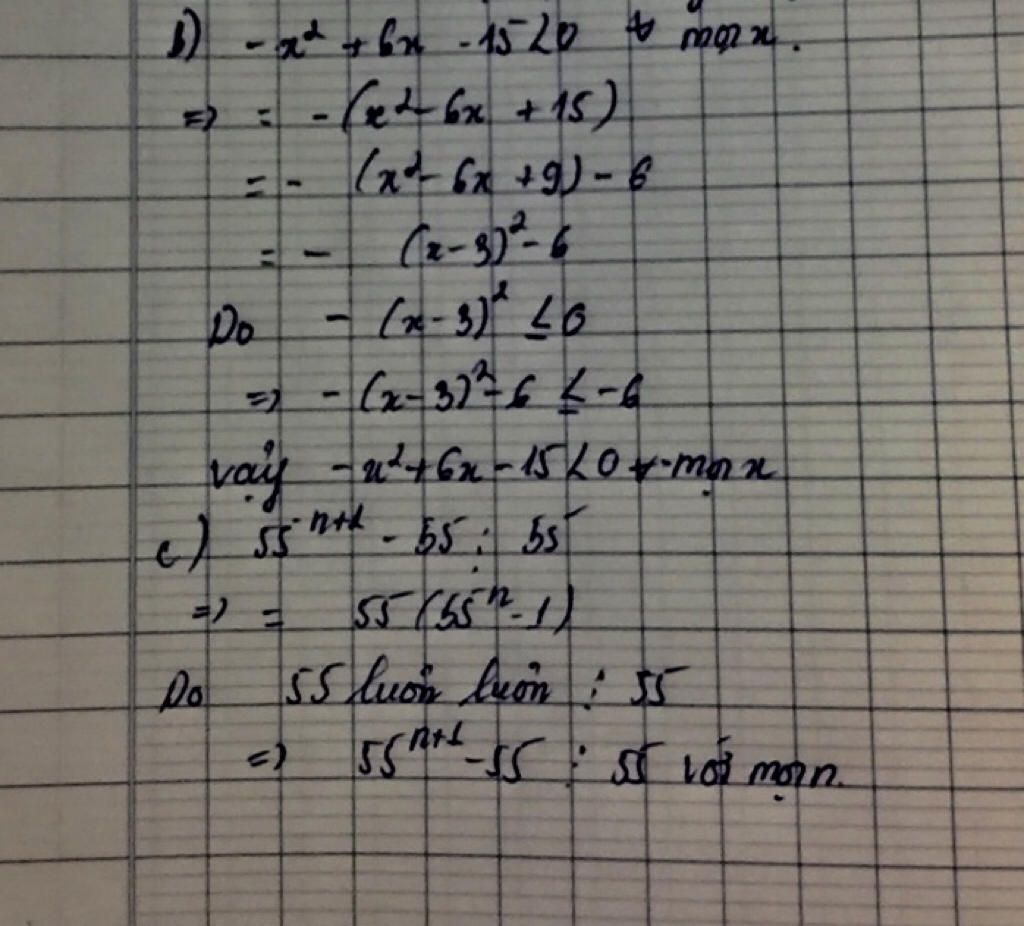 b) -x² + 6x - 15 < 0 ∀ mọi x.
=> = -(x² - 6x + 15)
= - (x² - 6x + 9) - 6
= - (x - 3)² - 6
Do - (x - 3)² ≤ 0
=> - (x - 3)² - 6 ≤ -6
vậy -x² + 6x - 15 < 0 ∀ mọi x
c) 55ⁿ⁺¹ - 55 ⋮ 55
=> = 55 (55ⁿ - 1)
Do 55 luôn luôn ⋮ 55
=> 55ⁿ⁺¹ - 55 ⋮ 55 với mọi n.